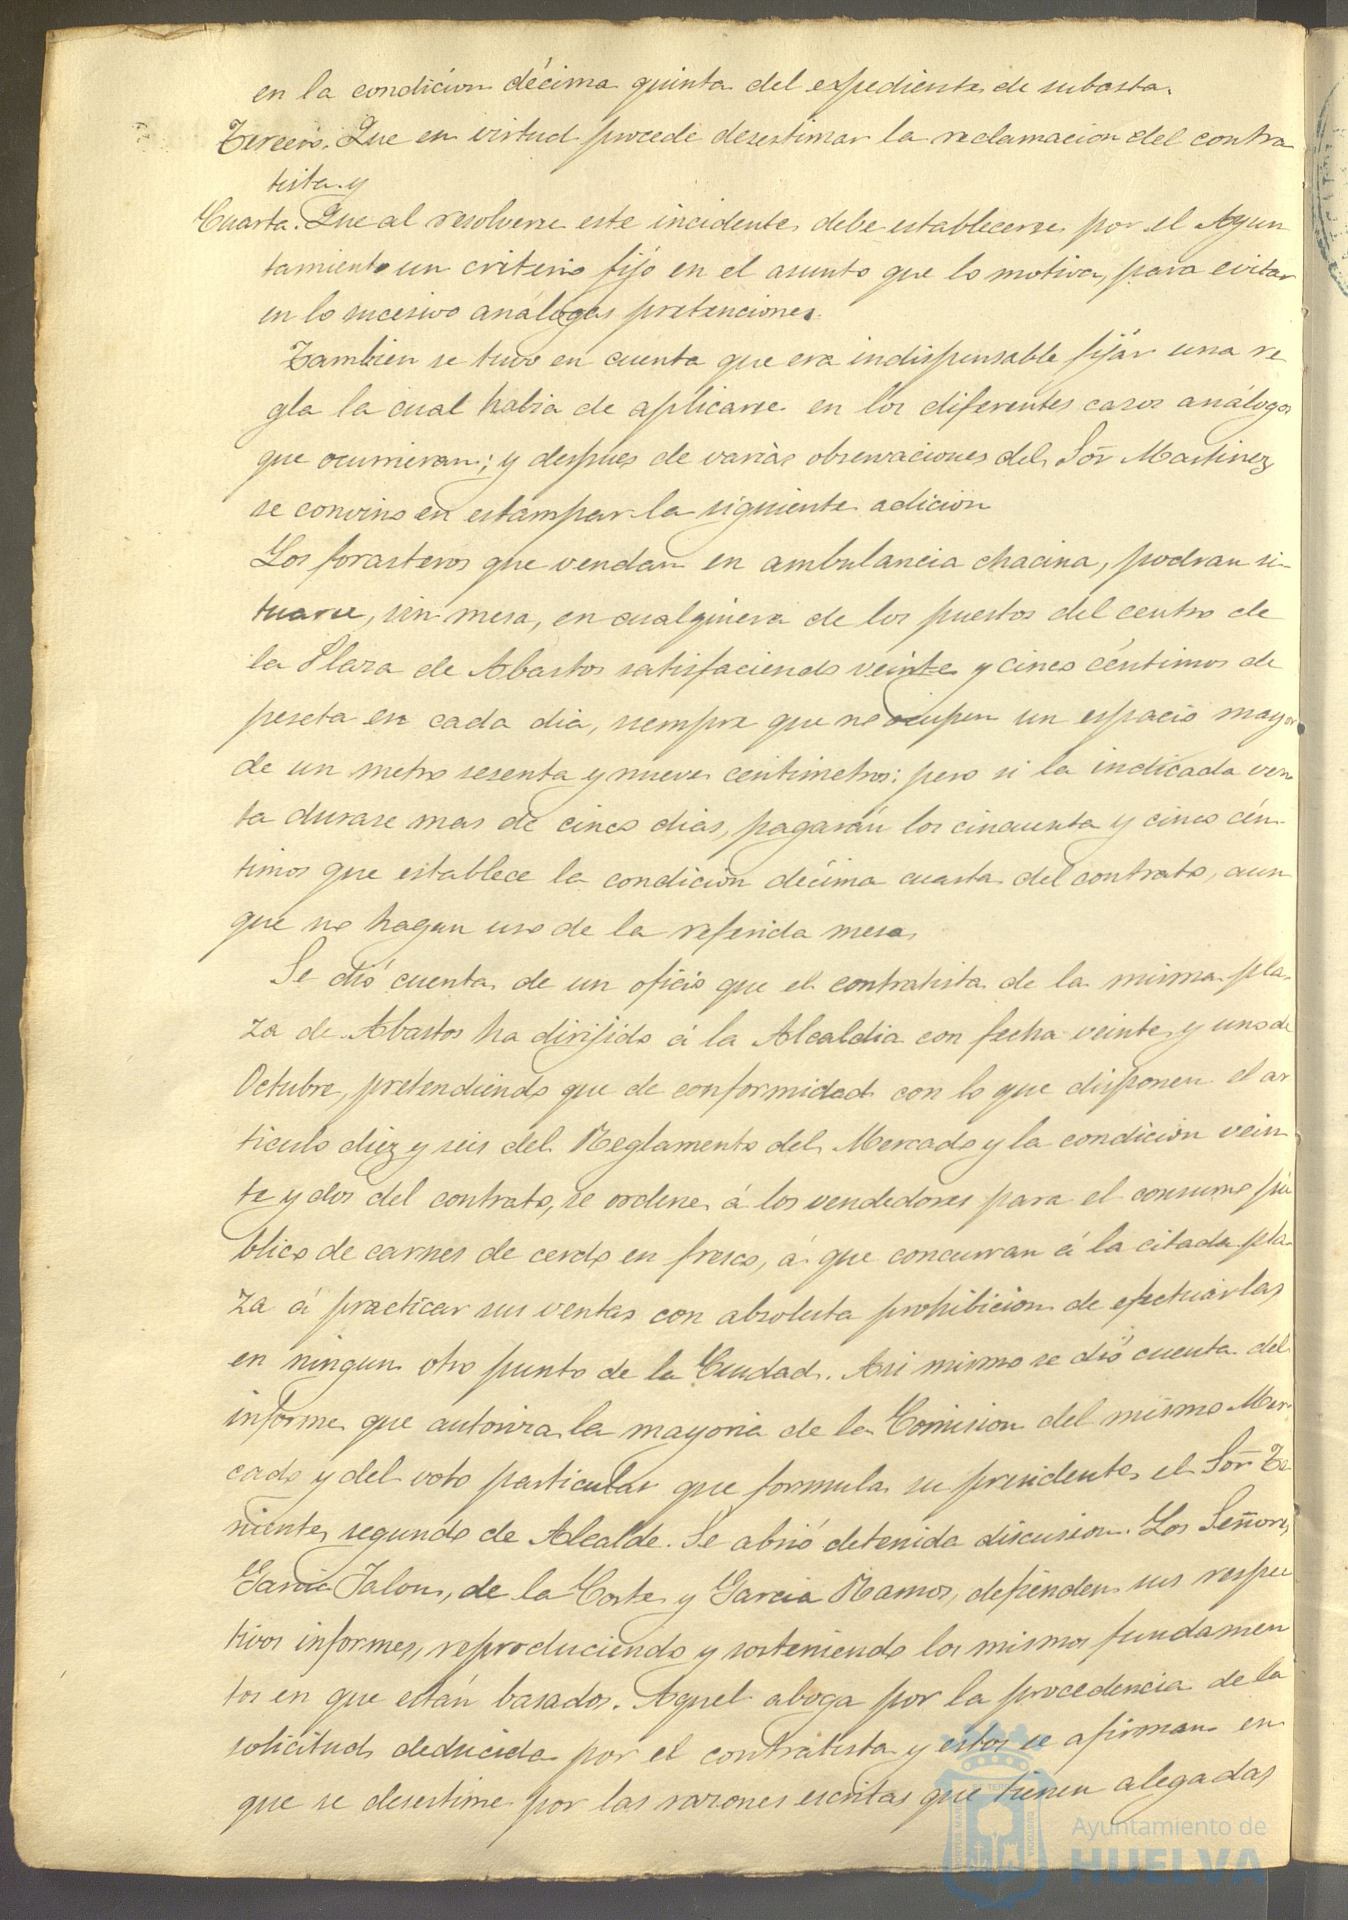 en la condicion décima quinta del expediente de subasta.
Tercero. Que en virtud procede desestimar la reclamacion del contra
tista y
Cuarta. Que al resolverse este incidente, debe establecerse por el Ayun
tamiento un criterio fijo en el asunto que lo motiva, para evitar
en lo sucesivo análogas pretenciones.
Tambien se tuvo en cuenta que era indispensable fijár una re
gla la cual habia de aplicarse en los diferentes casos análogos
que ocurrieran; y despues de varias observaciones del Sor Martinez
se convino en estampar la siguiente adicion
Los forasteros que vendan en ambulancia chacina, podran si-
tuarse, sin mesa, en cualquiera de los puestos del centro de
la Plaza de Abastos satisfaciendo veinte y cinco céntimos de
peseta en cada dia, siempre que no ocupen un espacio mayor
de un metro sesenta y nueve centimetros: pero si la indicada ven
ta durase mas de cinco dias, pagarán los cincuenta y cinco cén-
timos que establece la condicion décima cuarta del contrato, aun
que no hagan uso de la referida mesa.
Se dió cuenta de un oficio que el contratista de la misma pla-
za de Abastos ha dirijido á la Alcaldia con fecha veinte y uno de
Octubre, pretendiendo que de conformidad con lo que disponen el ar
ticulo diez y seis del Reglamento del Mercado y la condicion vein
te y dos del contrato, se ordene á los vendedores para el consumo pú
blico de carnes de cerdo en fresco, á que concurran á la citada pla-
za á practicar sus ventas con absoluta prohibicion de efectuarlas
en ningun otro punto de la Ciudad. Asi mismo se dió cuenta del
informe que autoriza la mayoria de la Comision del mismo Mer-
cado y del voto particular que formula su presidente el Sor Te-
niente segundo de Alcalde. Se abrió detenida discusion. Los Señores
Garcia Jalon, de la Corte y Garcia Ramos, defienden sus respec
tivos informes, reproduciendo y sosteniendo los mismos fundamen
tos en que están basados. Aquel aboga por la procedencia de la
solicitud deducida por el contratista y estos se afirman en
que se desestime por las razones escritas que tienen alegadas
Ayuntamiento de
HUELVA